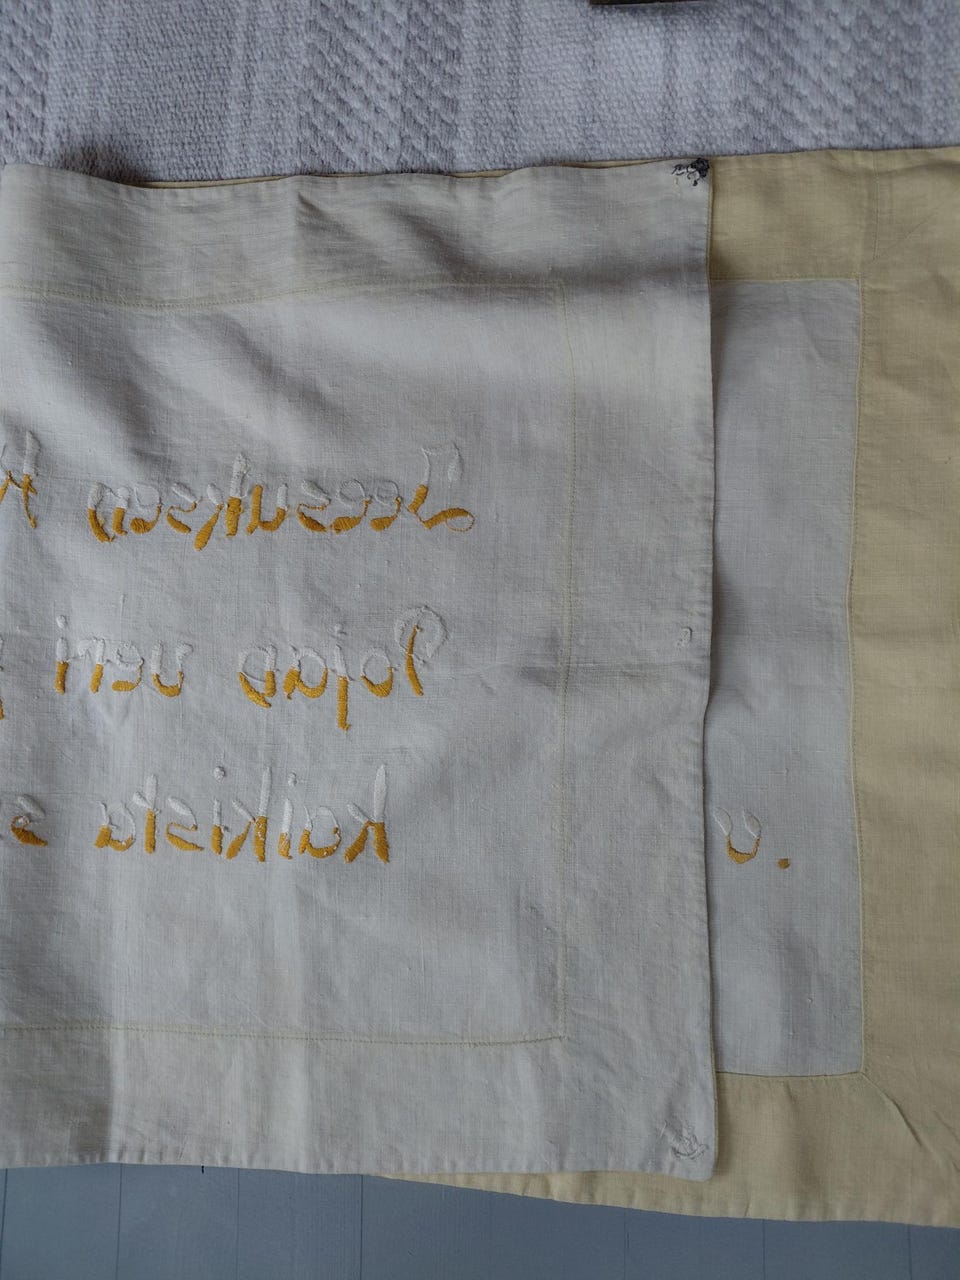 Jeesuksen
Pojan veri
kaikista s